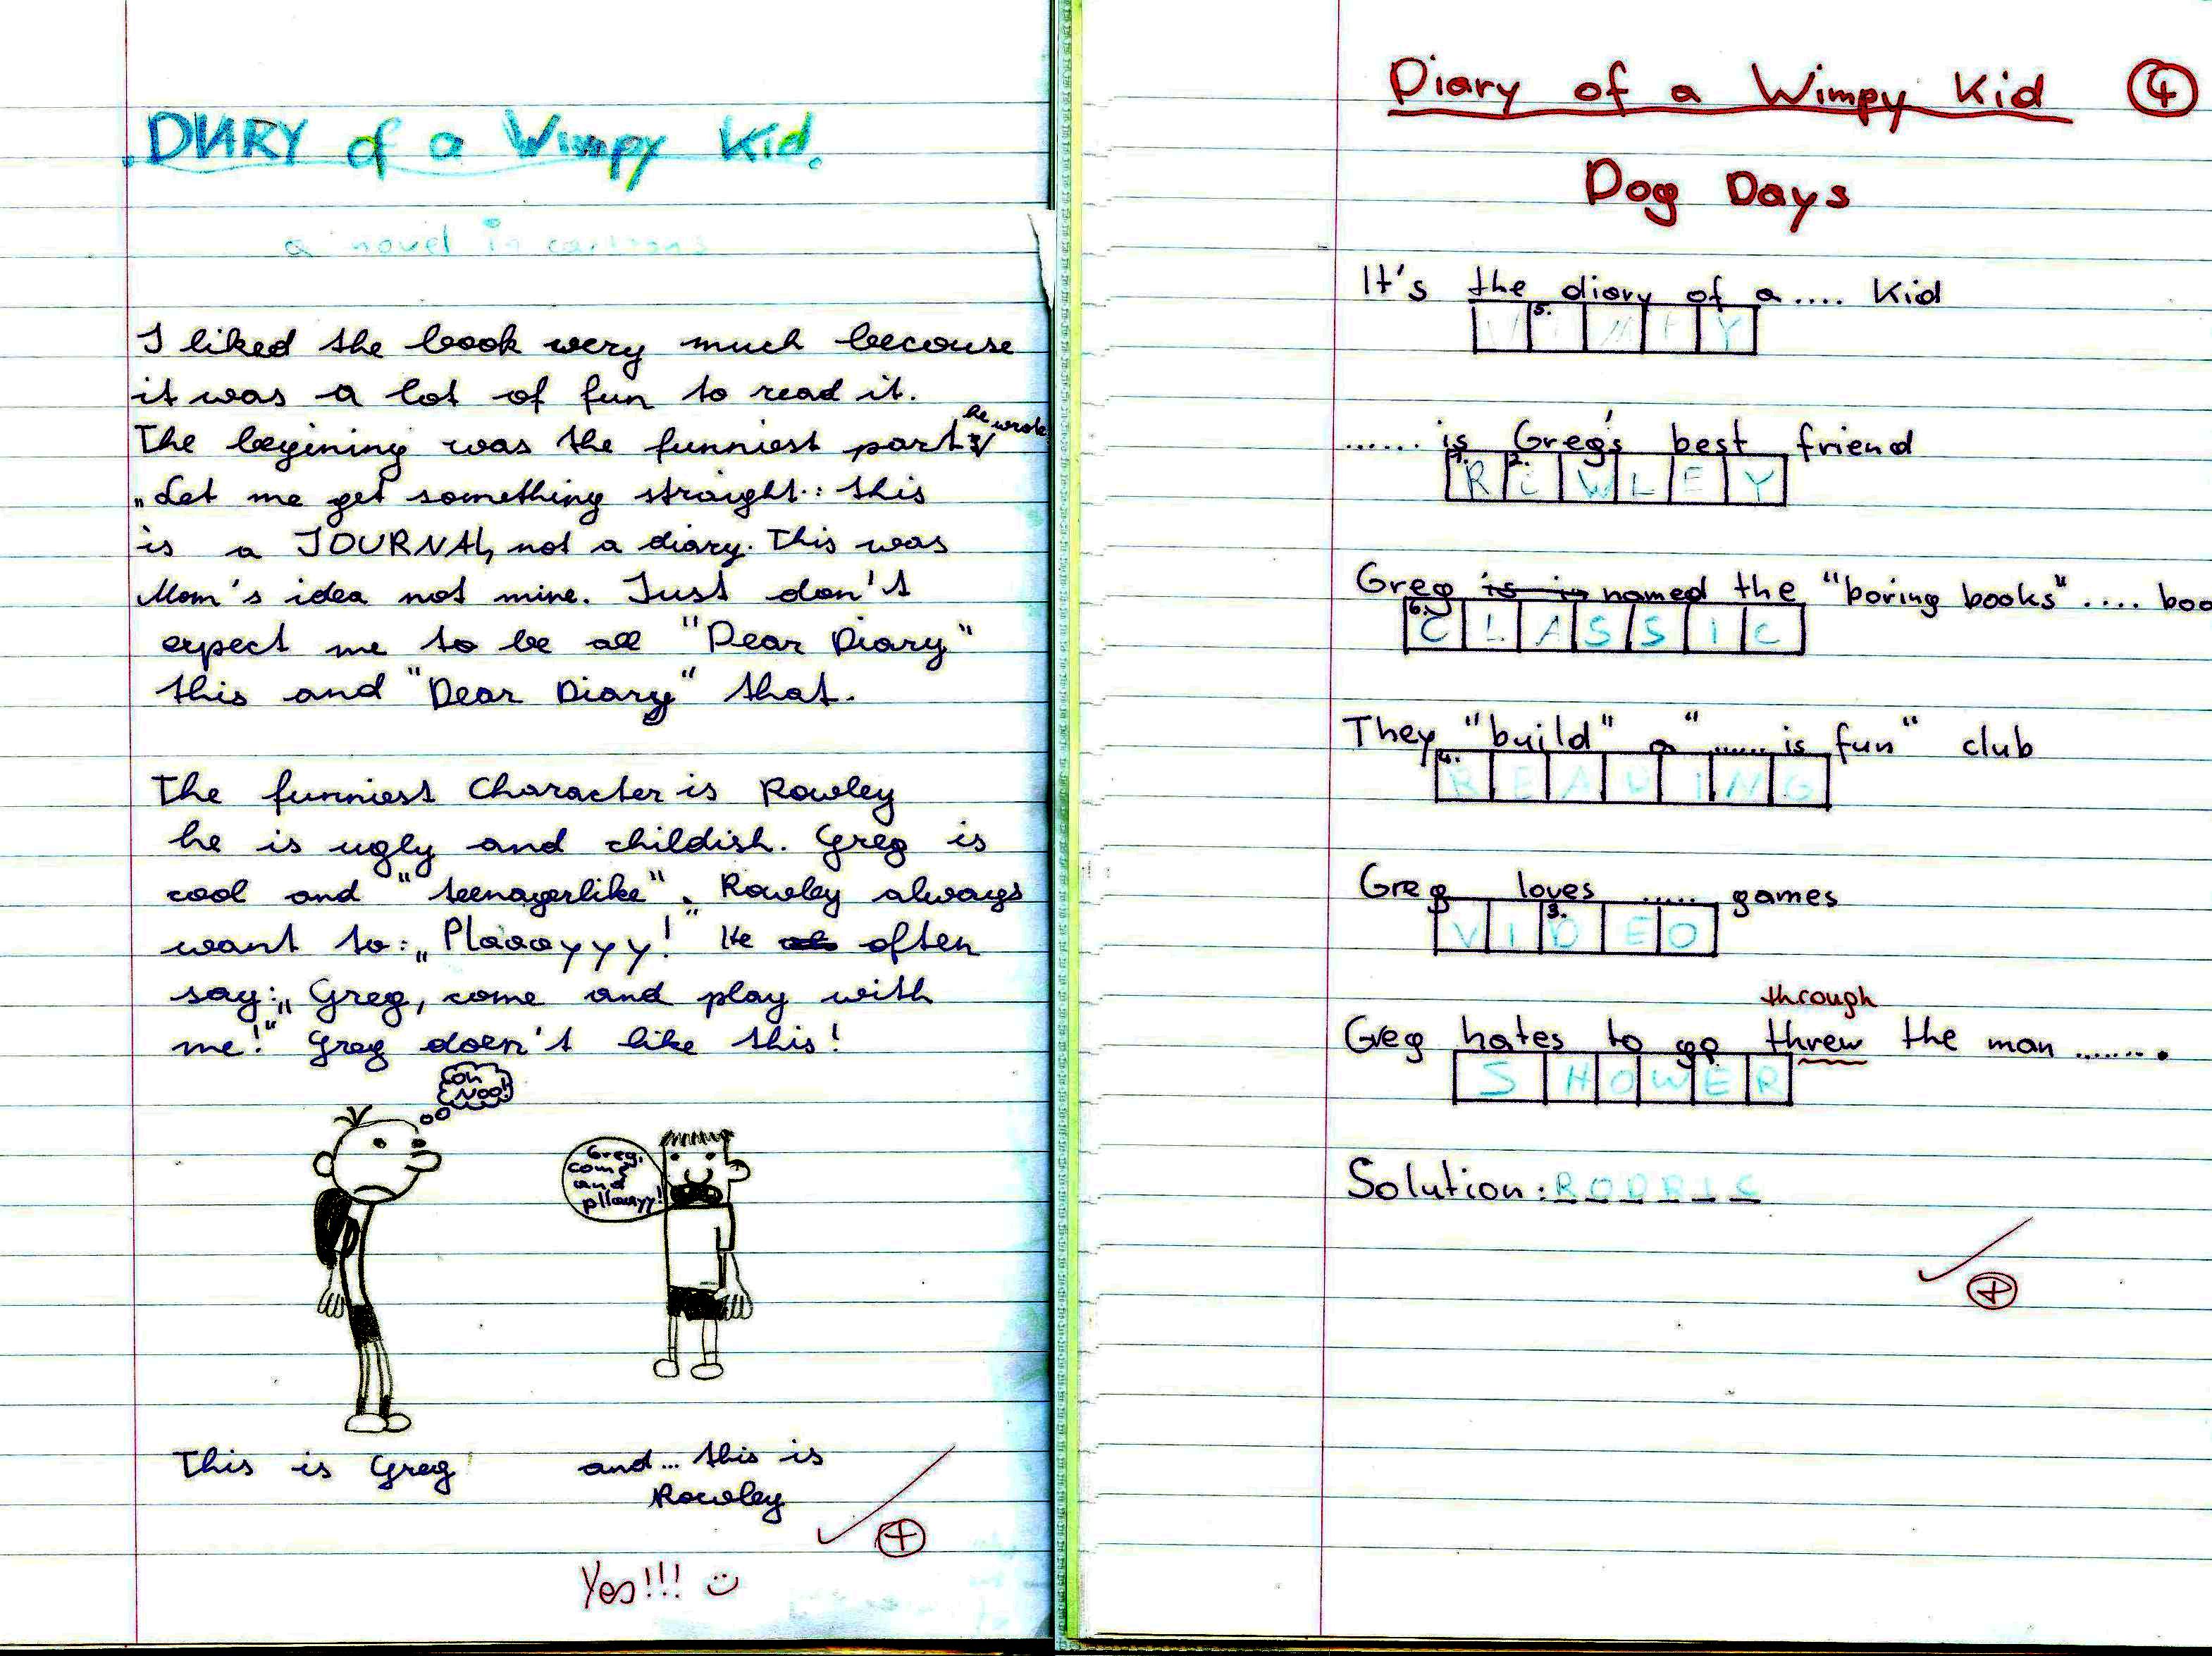 DIARY of a Wimpy Kid.
a novel in cartoons
I liked the book wery much becouse
it was a lot of fun to read it.
he wrote
The begining was the funniest part:
„Let me get something straight: this
is a JOURNAL, not a diary. This was
Mom's idea not mine. Just don't
expect me to be all "Dear Diary"
this and "Dear Diary" that.
The funniest Character is Rowley
he is ugly and childish. Greg is
cool and "teenagerlike". Rowley always
want to: „Plaaayyy!" He often
say: „Greg, come and play with
me!" Greg doen't like this!
Oh
Noo!
Greg,
come
and
pllaayy!
This is Greg
and... this is
Rowley
Yes!!! ☺
Diary of a Wimpy Kid ④
Dog Days
It's the diary of a .... Kid
5.
WIMPY
...... is Greg's best friend
1. 2.
ROWLEY
Greg is in named the "boring books" .... boo
6.
CLASSIC
They "build" a "...... is fun" club
4.
READING
Greg loves ..... games
3.
VIDEO
through
Greg hates to go threw the man ....... .
SHOWER
Solution: RODRIC